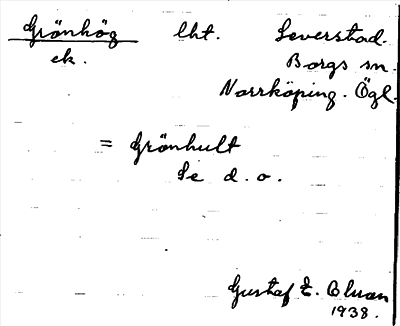 Grönhög lht. Leverstad.
ek. Borgs sn.
Norrköping. Ögl.
= Grönhult
Se d.o.
Gustaf E.
1938.